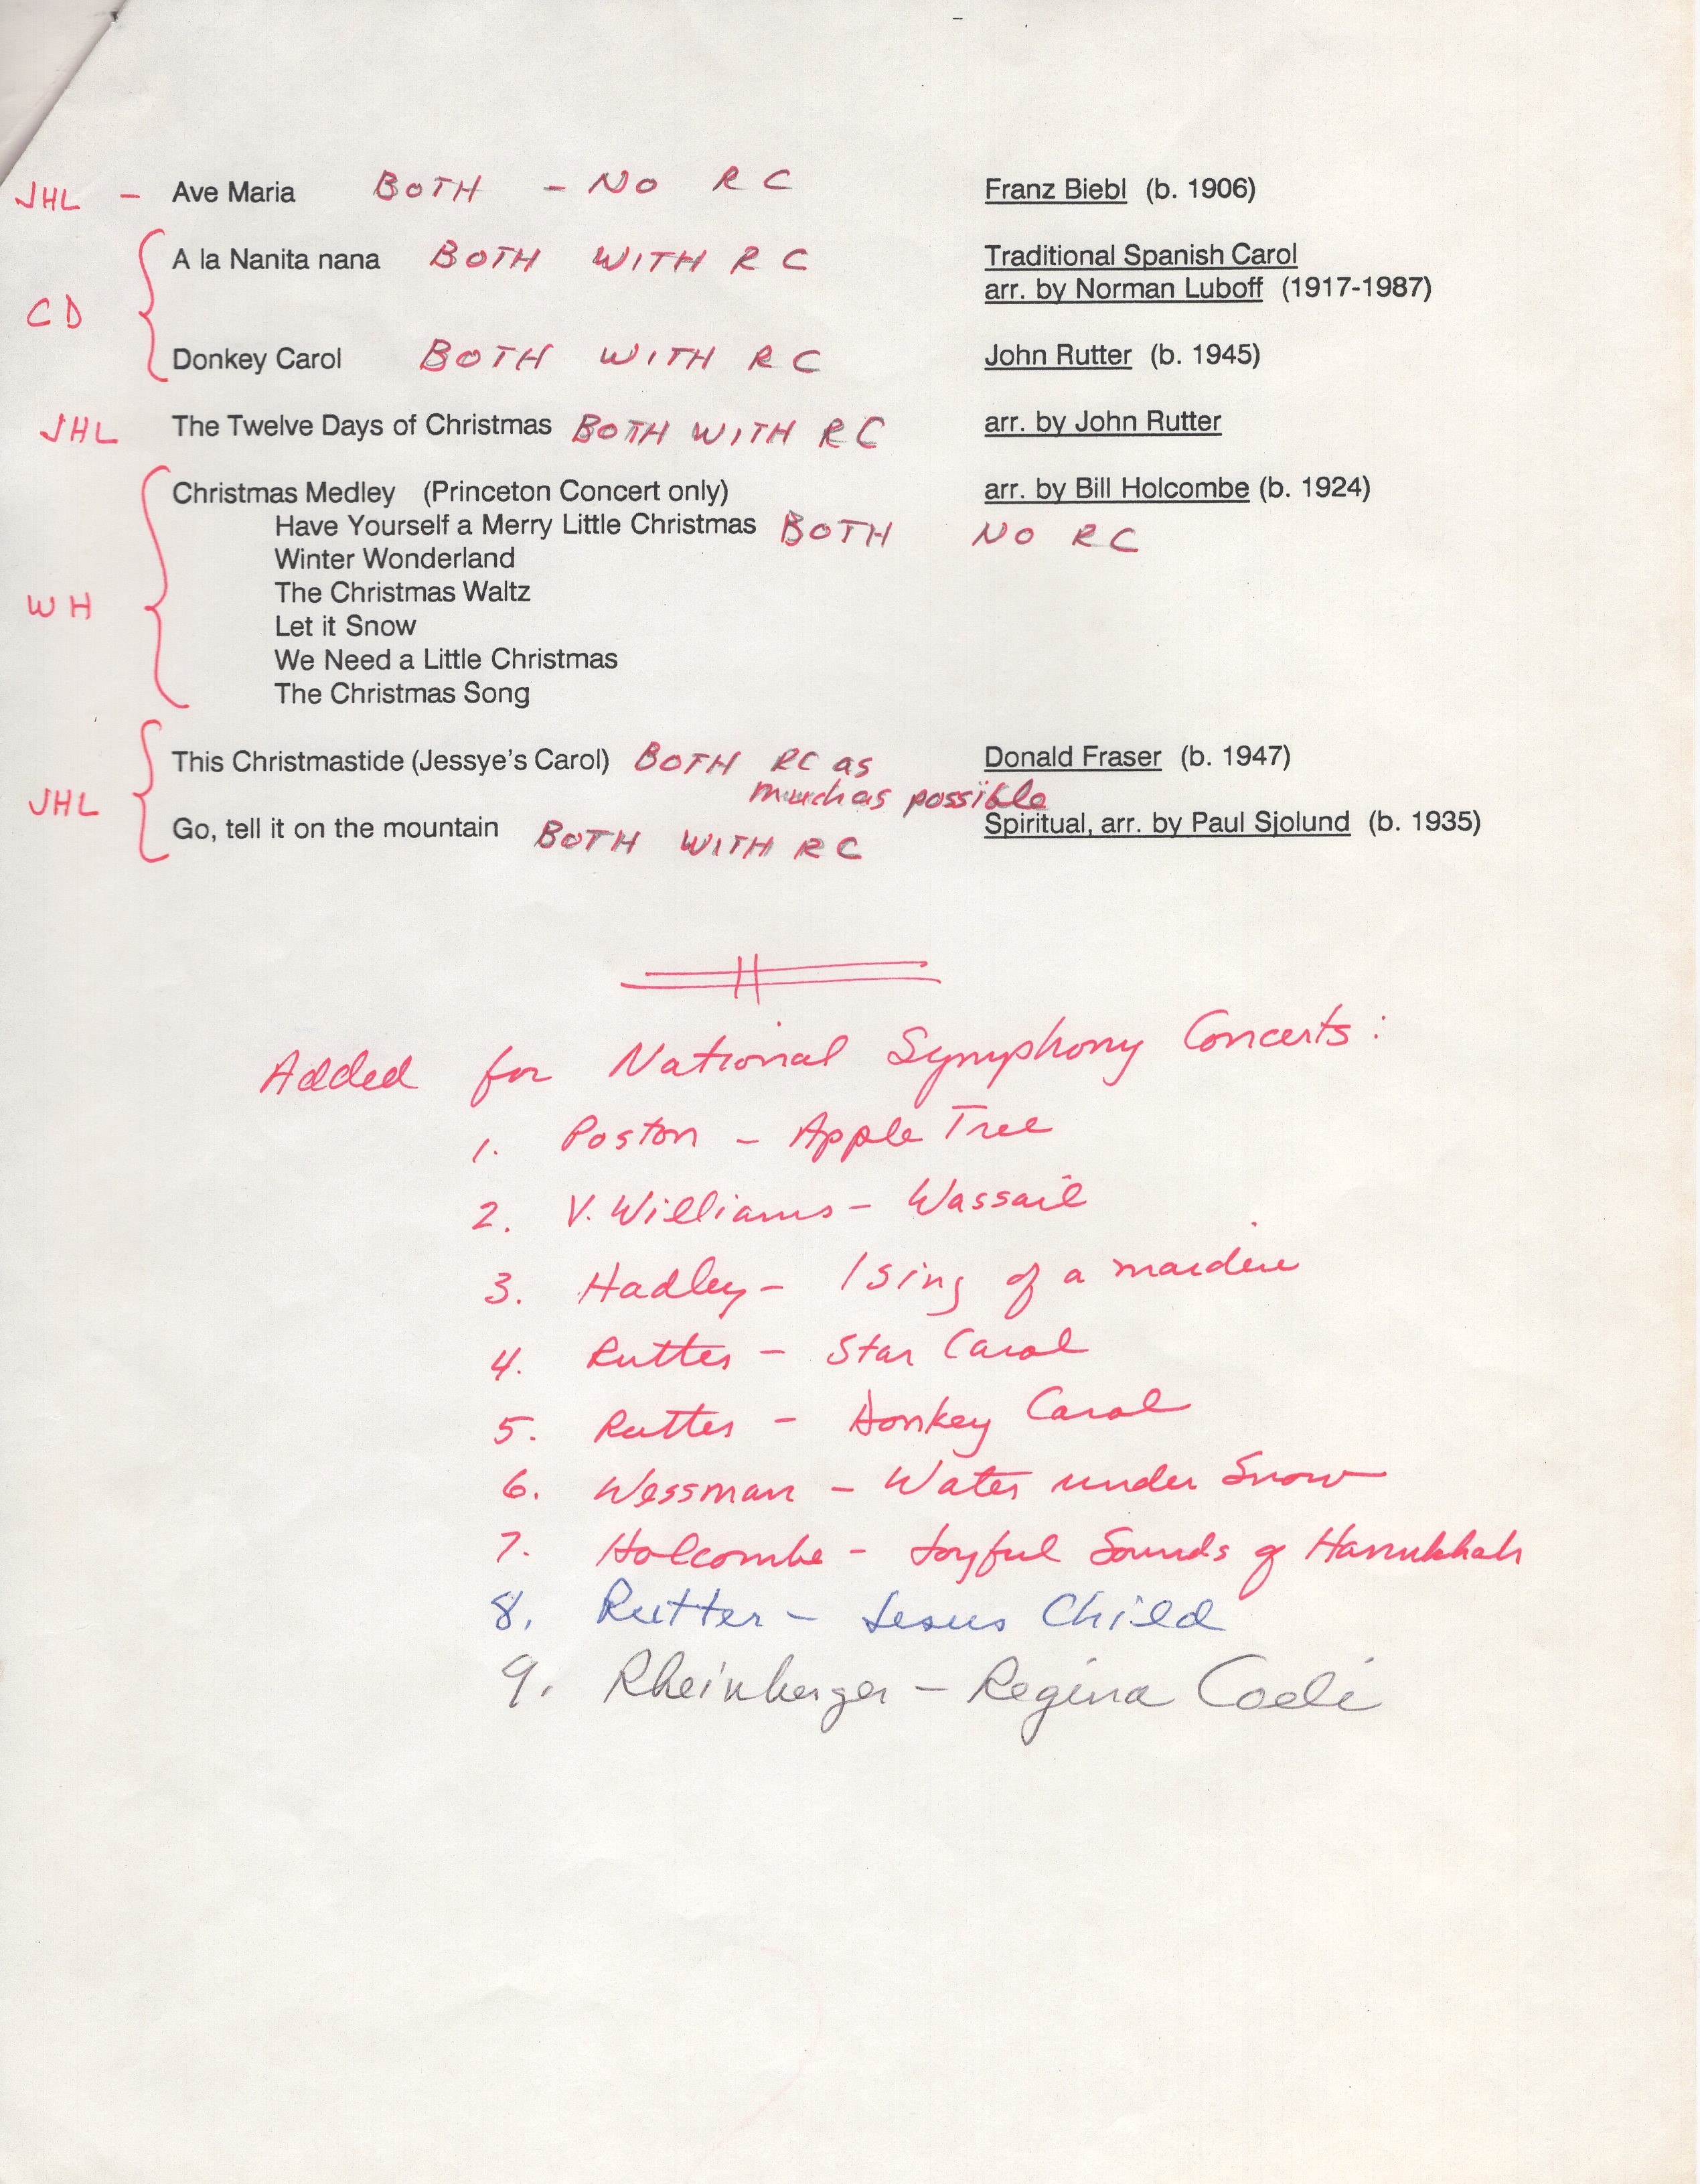 JHL - Ave Maria BOTH - NO RC Franz Biebl (b. 1906)
A la Nanita nana BOTH WITH RC Traditional Spanish Carol
arr. by Norman Luboff (1917-1987)
CD
Donkey Carol BOTH WITH RC John Rutter (b. 1945)
JHL The Twelve Days of Christmas BOTH WITH RC arr. by John Rutter
Christmas Medley (Princeton Concert only) arr. by Bill Holcombe (b. 1924)
Have Yourself a Merry Little Christmas BOTH NO RC
Winter Wonderland
WH The Christmas Waltz
Let it Snow
We Need a Little Christmas
The Christmas Song
This Christmastide (Jessye's Carol) BOTH RC as Donald Fraser (b. 1947)
much as possible
JHL
Go, tell it on the mountain BOTH WITH RC Spiritual, arr. by Paul Sjolund (b. 1935)
Added for National Symphony Concerts:
1. Poston - Apple Tree
2. V. Williams - Wassail
3. Hadley - I sing of a maiden
4. Rutter - Star Carol
5. Rutter - Donkey Carol
6. Wessman - Water under Snow
7. Holcombe - Joyful Sounds of Hanukkah
8. Rutter - Jesus Child
9. Rheinberger - Regina Coeli